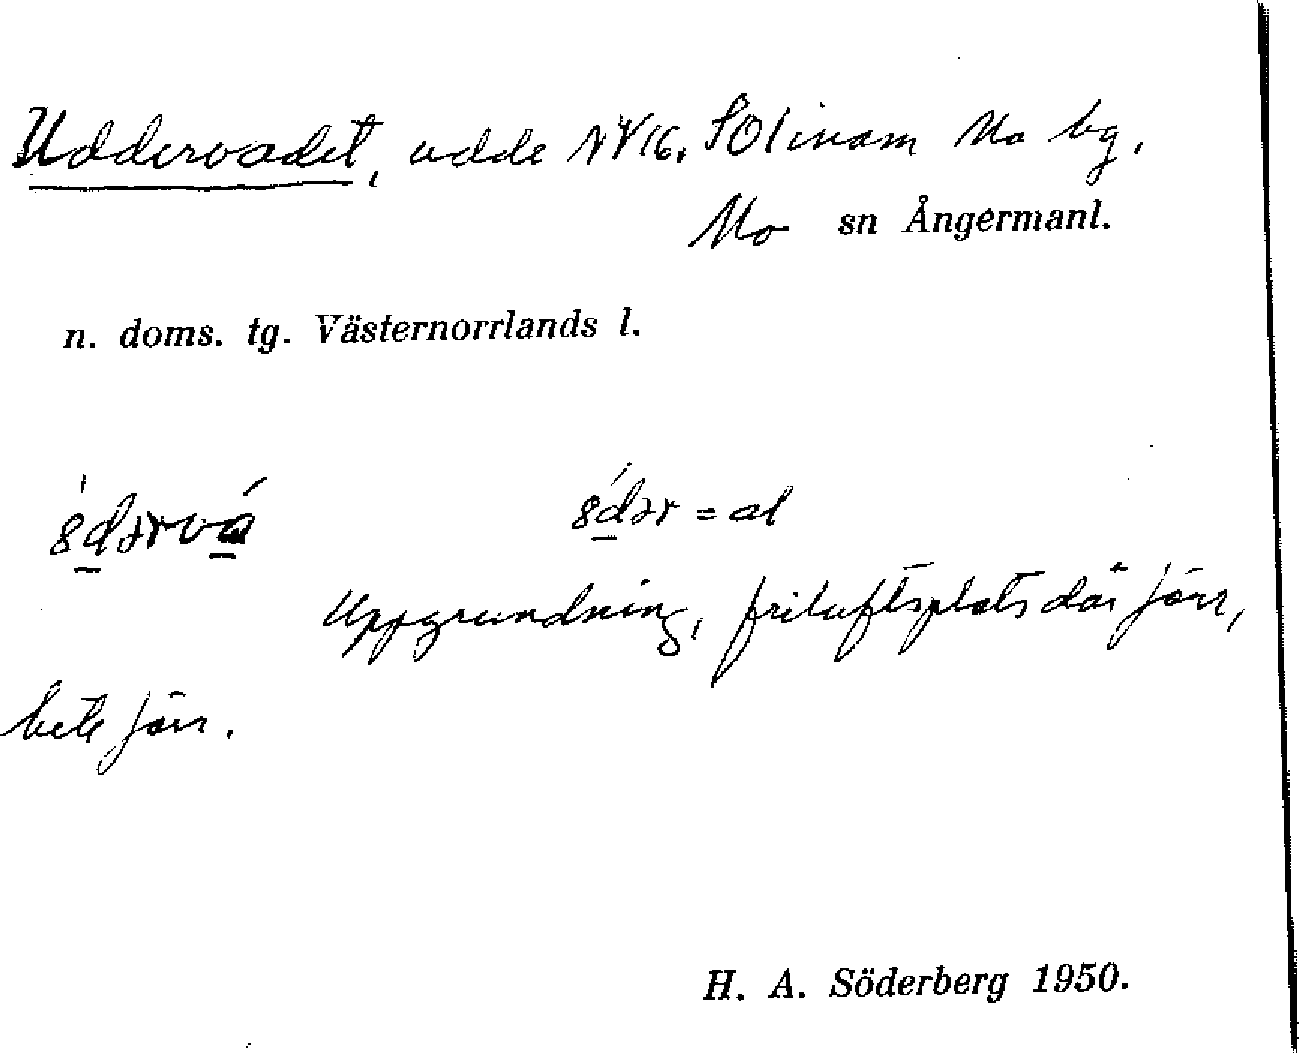 Uddervadet, udde NV16. SO1 inom Mo bg,
Mo sn Ångermanl.
n. doms. tg. Västernorrlands l.
= al
Uppgrundning, friluftsplats där förr,
bete förr.
H. A. Söderberg 1950.